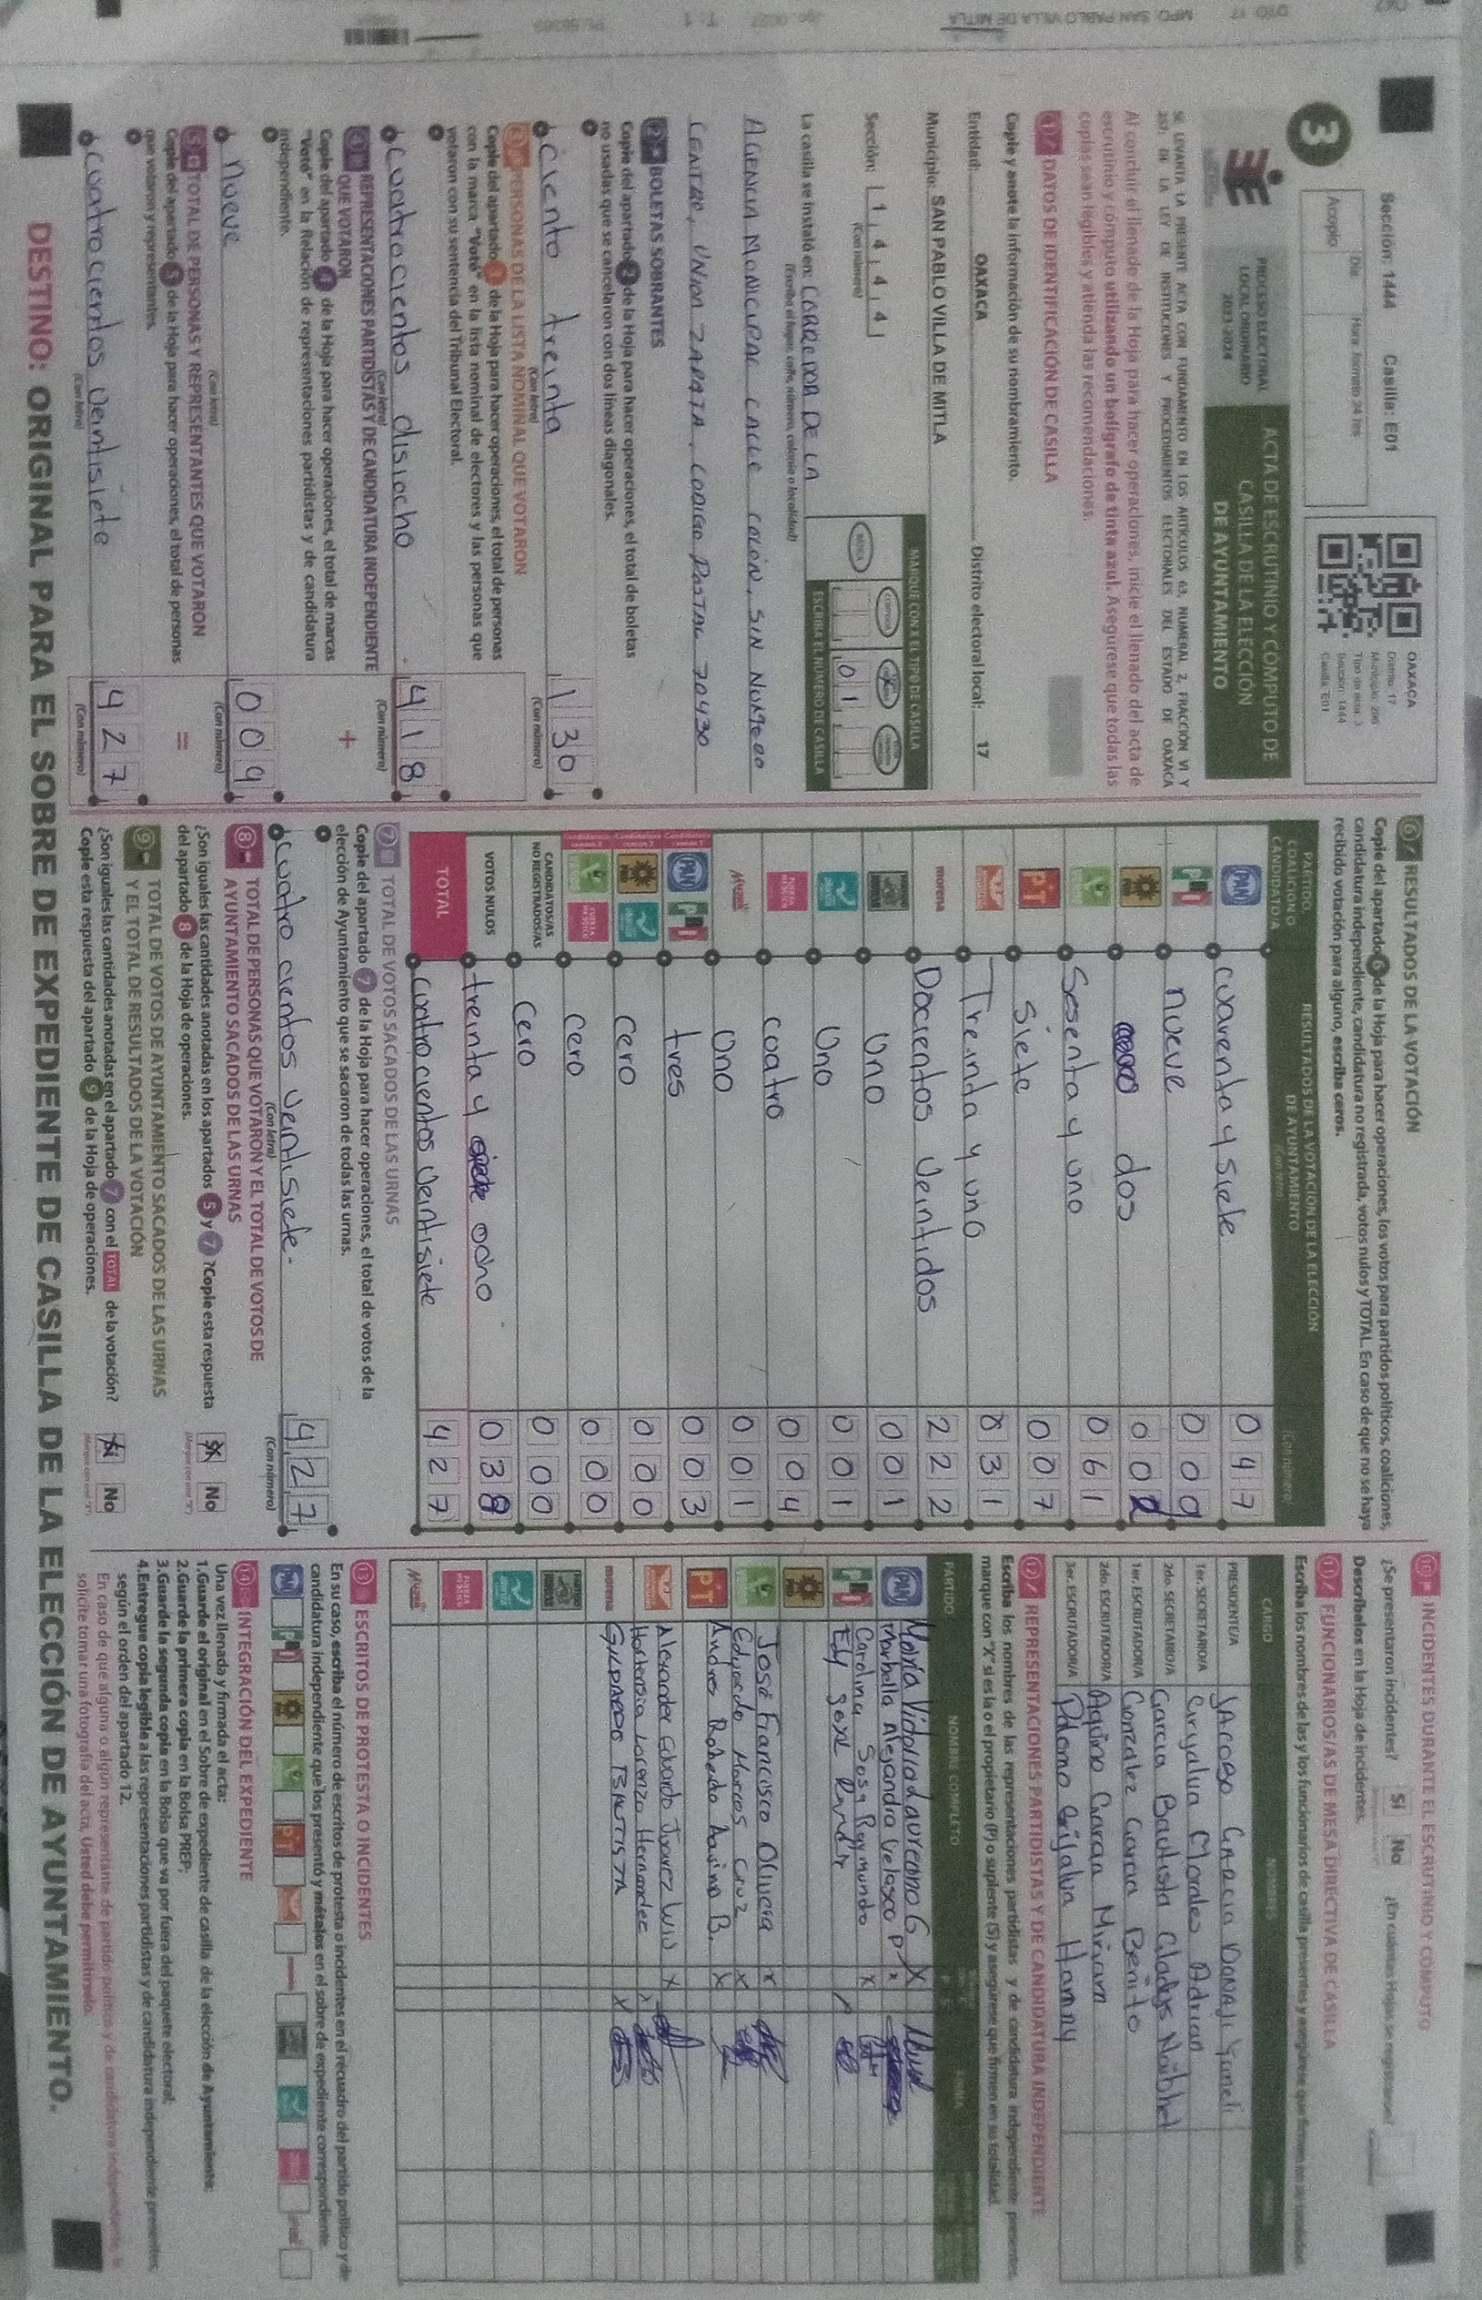 Sección: 1444 Casilla: E01
3
Acopio
Día
Hora formato 24 hrs
OAXACA
Distrito: 17
Sección: 1444
Casilla: E01
PROCESO ELECTORAL
LOCAL ORDINARIO
2023-2024
ACTA DE ESCRUTINIO Y CÓMPUTO DE
CASILLA DE LA ELECCIÓN
DE AYUNTAMIENTO
SE LEVANTA LA PRESENTE ACTA CON FUNDAMENTO EN LOS ARTÍCULOS 63, NUMERAL 2, FRACCIÓN VI Y
DE LA LEY DE INSTITUCIONES Y PROCEDIMIENTOS ELECTORALES DEL ESTADO DE OAXACA
Al concluir el llenado de la Hoja para hacer operaciones, inicie el llenado del acta de
escrutinio y cómputo utilizando un bolígrafo de tinta azul. Asegúrese que todas las
copias sean legibles y atienda las recomendaciones.
1 DATOS DE IDENTIFICACIÓN DE CASILLA
Copie y anote la información de su nombramiento.
Entidad: OAXACA Distrito electoral local: 17
Municipio: SAN PABLO VILLA DE MITLA
Sección: 1 4 4 4
(Con número)
MARQUE CON X EL TIPO DE CASILLA
ESCRIBA EL NÚMERO DE CASILLA
0 1
La casilla se instaló en: CORREDOR DE LA
(Escriba el lugar: calle, número, colonia o localidad)
AGENCIA MUNICIPAL CALLE COLÓN, SIN NÚMERO
CENTRO, UNION ZAPATA, CODIGO POSTAL 70430
2 BOLETAS SOBRANTES
Copie del apartado 2 de la Hoja para hacer operaciones, el total de boletas
no usadas que se cancelaron con dos líneas diagonales.
Ciento treinta 1 3 0
(Con letra) (Con número)
3 PERSONAS DE LA LISTA NOMINAL QUE VOTARON
Copie del apartado 3 de la Hoja para hacer operaciones, el total de personas
con la marca "Votó" en la lista nominal de electores y las personas que
votaron con su sentencia del Tribunal Electoral.
Cuatrocientos disiocho 4 1 8
(Con letra) (Con número)
4 REPRESENTACIONES PARTIDISTAS Y DE CANDIDATURA INDEPENDIENTE
QUE VOTARON
+
Copie del apartado 4 de la Hoja para hacer operaciones, el total de marcas
"Votó" en la Relación de representaciones partidistas y de candidatura
independiente.
nueve 0 0 9
(Con letra) (Con número)
5 TOTAL DE PERSONAS Y REPRESENTANTES QUE VOTARON
=
Copie del apartado 5 de la Hoja para hacer operaciones, el total de personas
que votaron y representantes.
Cuatrocientos Veintisiete 4 2 7
(Con letra) (Con número)
6 RESULTADOS DE LA VOTACIÓN
Copie del apartado 6 de la Hoja para hacer operaciones, los votos para partidos políticos, coaliciones,
candidatura independiente, candidatura no registrada, votos nulos y TOTAL. En caso de que no se haya
recibido votación para alguno, escriba ceros.
PARTIDO,
COALICIÓN O
CANDIDATO/A
RESULTADOS DE LA VOTACIÓN DE LA ELECCIÓN
DE AYUNTAMIENTO
(Con letra) (Con número)
PAN Cuarenta y siete 0 4 7
PRI nueve 0 0 9
PRD dos 0 0 2
Sesenta y uno 0 6 1
PT Siete 0 0 7
Treinta y uno 0 3 1
morena Docientos Veintidos 2 2 2
Uno 0 0 1
Uno 0 0 1
FUERZA MÉXICO cuatro 0 0 4
Mujer Uno 0 0 1
PAN PRI tres 0 0 3
PRD Cero 0 0 0
FUERZA MÉXICO Cero 0 0 0
CANDIDATOS/AS
NO REGISTRADOS/AS Cero 0 0 0
VOTOS NULOS treinta y ocho 0 3 8
TOTAL Cuatrocientos Veintisiete 4 2 7
7 TOTAL DE VOTOS SACADOS DE LAS URNAS
Copie del apartado 7 de la Hoja para hacer operaciones, el total de votos de la
elección de Ayuntamiento que se sacaron de todas las urnas.
Cuatrocientos Veintisiete. 4 2 7
(Con letra) (Con número)
8 TOTAL DE PERSONAS QUE VOTARON Y EL TOTAL DE VOTOS DE
AYUNTAMIENTO SACADOS DE LAS URNAS
¿Son iguales las cantidades anotadas en los apartados 5 y 7? Copie esta respuesta
del apartado 8 de la Hoja de operaciones.
Sí No
9 TOTAL DE VOTOS DE AYUNTAMIENTO SACADOS DE LAS URNAS
Y EL TOTAL DE RESULTADOS DE LA VOTACIÓN
¿Son iguales las cantidades anotadas en el apartado 7 con el TOTAL de la votación?
Copie esta respuesta del apartado 9 de la Hoja de operaciones.
Sí No
10 INCIDENTES DURANTE EL ESCRUTINIO Y CÓMPUTO
¿Se presentaron incidentes? Sí No ¿En cuántas Hojas se registraron?
Descríbalos en la Hoja de incidentes.
11 FUNCIONARIOS/AS DE MESA DIRECTIVA DE CASILLA
Escriba los nombres de las y los funcionarios de casilla presentes y asegúrese que firmen en su totalidad.
CARGO NOMBRES
PRESIDENTE/A JACOBO GARCIA DONAJI Yaneli
1er. SECRETARIO/A Grijalva Morales Adrian
2do. SECRETARIO/A Garcia Bautista Gladys Naibhel
1er. ESCRUTADOR/A Gonzalez Garcia Benito
2do. ESCRUTADOR/A Aquino Garcia Miriam
3er. ESCRUTADOR/A Palomo Grijalva Hanny
12 REPRESENTACIONES PARTIDISTAS Y DE CANDIDATURA INDEPENDIENTE
Escriba los nombres de las representaciones partidistas y de candidatura independiente presentes,
marque con "X" si es la o el propietario (P) o suplente (S) y asegúrese que firmen en su totalidad.
PARTIDO NOMBRE COMPLETO FIRMA
PAN María Vidalia Laureano G X
Marbella Alejandra Velasco P x
PRI Carolina Sosa Raymundo X
Ely
PRD
José Francisco Olivera x
Eduardo Marcos Cruz x
PT Andres Robledo Aquino B. X
Alexander Eduardo Juarez Luis X
Hortensia Lorenzo Hernandez x
morena GILDARDO BAUTISTA X
FUERZA MÉXICO
Mujer
13 ESCRITOS DE PROTESTA O INCIDENTES
En su caso, escriba el número de escritos de protesta o incidentes en el recuadro del partido político y de
candidatura independiente que los presentó y métalos en el sobre de expediente correspondiente.
14 INTEGRACIÓN DEL EXPEDIENTE
Una vez llenada y firmada el acta:
1.Guarde el original en el Sobre de expediente de casilla de la elección de Ayuntamiento;
2.Guarde la primera copia en la Bolsa PREP;
3.Guarde la segunda copia en la Bolsa que va por fuera del paquete electoral;
4.Entregue copia legible a las representaciones partidistas y de candidatura independiente presentes,
según el orden del apartado 12.
En caso de que alguna o algún representante de partido político y de candidatura independiente,
solicite tomar una fotografía del acta, Usted debe permitírselo.
DESTINO: ORIGINAL PARA EL SOBRE DE EXPEDIENTE DE CASILLA DE LA ELECCIÓN DE AYUNTAMIENTO.